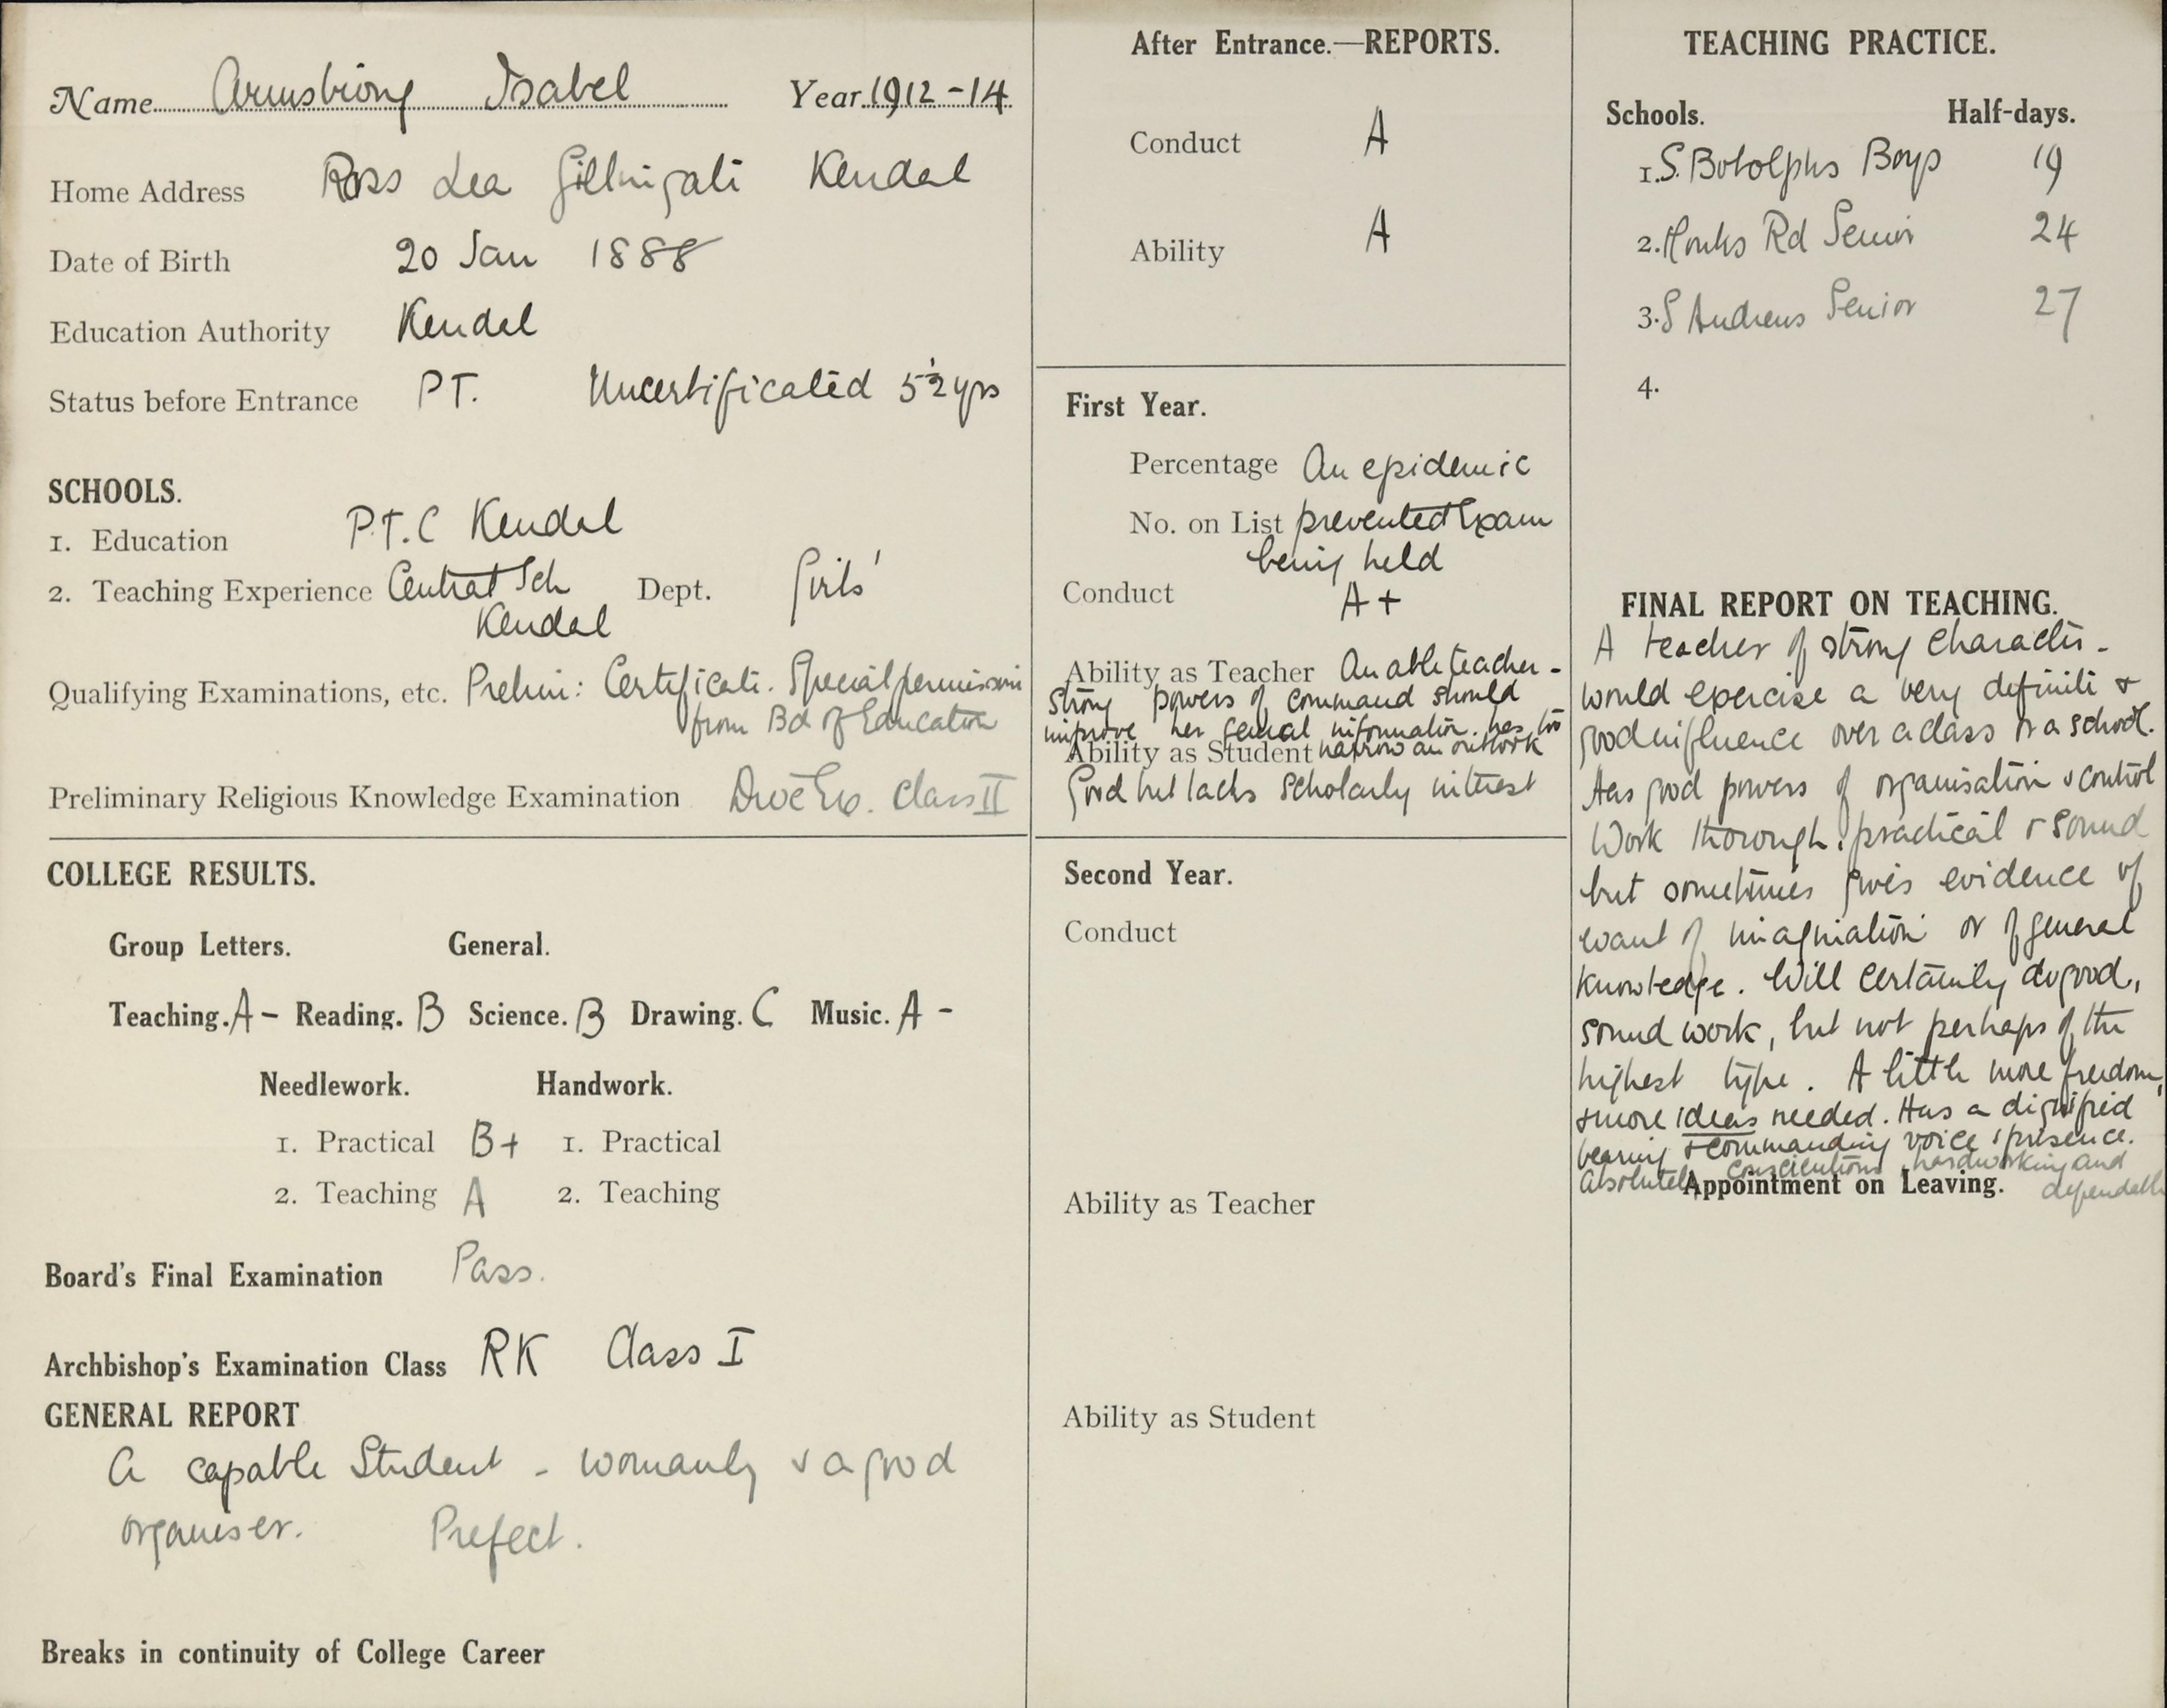 Name Armstrong Isabel Year 1912-14
Home Address Ross Lea Gillingate Kendal
Date of Birth 20 Jan 1888
Education Authority Kendal
Status before Entrance P.T. Uncertificated 5½ yrs
SCHOOLS.
1. Education P.T.C Kendal
2. Teaching Experience Central Sch Dept. Girls'
Kendal
Qualifying Examinations, etc. Prelim: Certificate. Special permission
from Bd of Education
Preliminary Religious Knowledge Examination Class II
COLLEGE RESULTS.
Group Letters. General.
Teaching. A- Reading. B Science. B Drawing. C Music. A -
Needlework. Handwork.
1. Practical B+ 1. Practical
2. Teaching A 2. Teaching
Board's Final Examination Pass.
Archbishop's Examination Class RK Class I
GENERAL REPORT
A capable Student - womanly & a good
organiser. Prefect.
Breaks in continuity of College Career
After Entrance.—REPORTS.
Conduct A
Ability A
First Year.
Percentage An epidemic
No. on List prevented Exam
being held
Conduct A+
Ability as Teacher An able teacher -
strong powers of command should
improve her general information. has too
Ability as Student narrow an outlook
Good but lacks scholarly interest
Second Year.
Conduct
Ability as Teacher
Ability as Student
TEACHING PRACTICE.
Schools. Half-days.
1. S. Botolphs Boys 19
2. Monks Rd Senior 24
3. S Andrews Senior 27
4.
FINAL REPORT ON TEACHING.
A teacher of strong character -
would exercise a very definite &
good influence over a class or a school.
Has good powers of organisation & control
Work thorough, practical & sound
but sometimes gives evidence of
want of imagination or of general
knowledge. Will certainly do good,
sound work, but not perhaps of the
highest type. A little more freedom,
& more ideas needed. Has a dignified
bearing & commanding voice & presence.
Absolutely conscientious, hardworking and
Appointment on Leaving. dependable